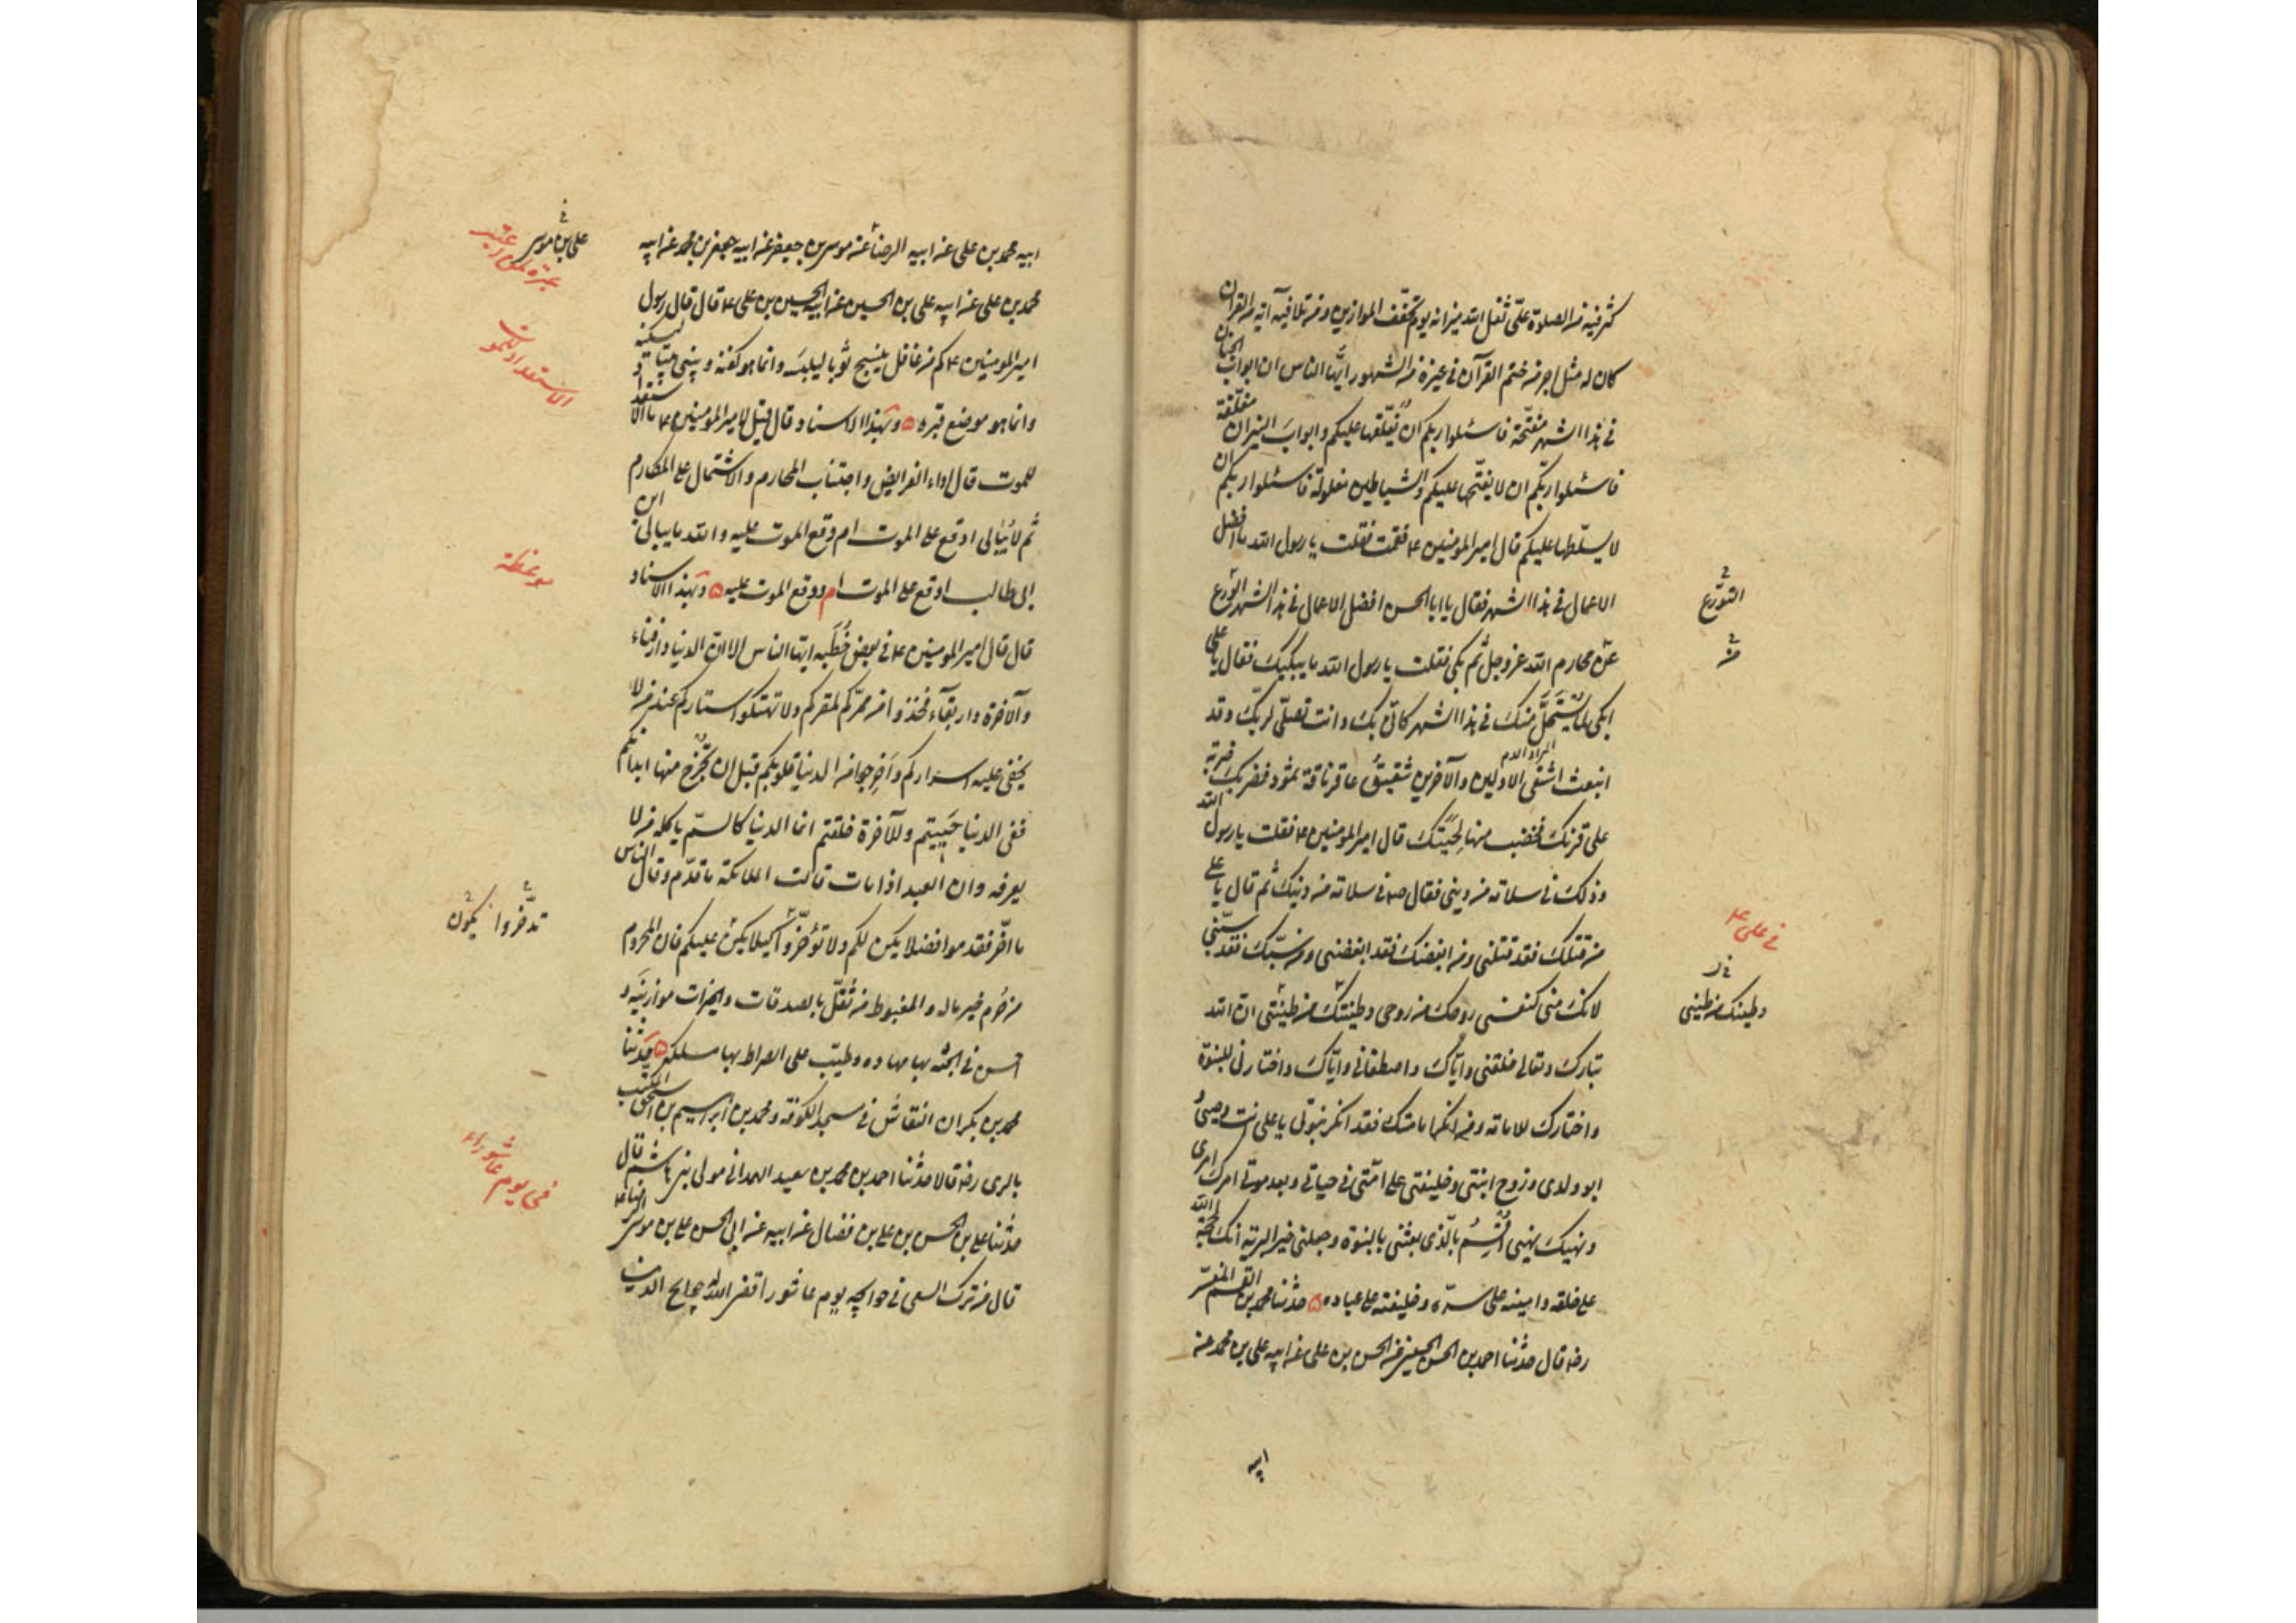 كثر فيه من الصلوة علىّ ثقل الله ميزانه يوم تخفّف الموازين ومن تلا فيه آية من القرآن
كان له مثل اجر من ختم القرآن في غيره من الشهور ايّها الناس ان ابواب الجنان
في هذا الشهر مفتّحة فاسئلوا ربكم ان لا يغلّقها عليكم وابواب النيران مغلّقة
فاسئلوا ربّكم ان لا يفتّحها عليكم والشياطين مغلولة فاسئلوا ربكم ان
لا يسلّطها عليكم قال امير المومنين ع فقمت فقلت يا رسول الله ما افضل
الاعمال في هذا الشهر فقال يا ابا الحسن افضل الاعمال في هذا الشهر الورع
التورّع
عن محارم الله عز وجل ثم بكى فقلت يا رسول الله ما يبكيك فقال يا على
ابكى لما يستحلّ منك في هذا الشهر كانّى بك وانت تصلّى لربّك وقد
انبعث اشقى الاولين والآخرين شقيق عاقر ناقة ثمود فضربك ضربة
على قرنك فخضب منها لحيتك قال امير المومنين ع فقلت يا رسول الله
وذلك في سلامة من ديني فقال ص في سلامة من دينك ثم قال يا على
في على ع
من قتلك فقد قتلنى ومن ابغضك فقد ابغضنى ومن سبّك فقد سبّنى
لانك منى كنفسى روحك من روحى وطينتك من طينتى ان الله
وطينتك من طينتى
تبارك وتعالى خلقنى وايّاك واصطفانى وايّاك واختارنى للنبوّة
واختارك للامامة ومن انكر امامتك فقد انكر نبوتى يا على انت وصيى
ابو ولدى وزوج ابنتى وخليفتى على امّتى في حياتى وبعد موتى امرك امرى
ونهيك نهيى اقسم بالّذى بعثنى بالنبوة وجعلنى خير البرية انك لحجّة الله
على خلقه وامينه على سرّه وخليفته على عباده حدثنا محمد بن القسم المفسّر
رضه قال حدثنا احمد بن الحسن الحسينى عن الحسن بن على عن ابيه على بن محمد عن
ابيه
ابيه محمد بن على عن ابيه الرضا عن موسى بن جعفر عن ابيه جعفر بن محمد عن ابيه
على بن موسى
محمد بن على عن ابيه على بن الحسين عن ابيه الحسين بن على ع قال قال رسول
امير المومنين ع كم من غافل ينسج ثوبا ليلبسه وانما هو كفنه ويبنى بيتا ليسكنه
وانما هو موضع قبره وبهذا الاسناد قال قيل لامير المومنين ع ما الاستعداد
الاستعداد للموت
للموت قال اداء الفرايض واجتناب المحارم والاشتمال على المكارم
ثم لا يبالى اوقع على الموت ام وقع الموت عليه والله ما يبالى ابن
ابى طالب اوقع على الموت ام وقع الموت عليه وبهذا الاسناد
موعظة
قال قال امير المومنين ع في بعض خُطَبه ايها الناس الا ان الدنيا دار فناء
والآخرة دار بقاء فخذوا من ممرّكم لمقركم ولا تهتكوا استاركم عند من لا
يخفى عليه اسراركم واخرجوا من الدنيا قلوبكم قبل ان تخرج منها ابدانكم
ففى الدنيا حييتم وللآخرة خلقتم انما الدنيا كالسمّ ياكله من لا
يعرفه وان العبد اذا مات قالت الملائكة ما قدّم وقال الناس
ما اخّر فقدموا فضلا يكن لكم ولا تؤخّروا كيلا يكن عليكم فان المحروم
من حُرم خير ماله والمغبوط من ثقّل بالصدقات والخيرات موازينه و
احسن في الجنّة بها مهاده وطيّب على الصراط بها مسلكه حدثنا
محمد بن بكران النقاش في مسجد الكوفة ومحمد بن ابراهيم بن اسحق المكتب
بالرى رضه قالا حدثنا احمد بن محمد بن سعيد الهمدانى مولى بنى هاشم قال
في يوم عاشوراء
حدثنا على بن الحسن بن على بن فضال عن ابيه عن ابى الحسن على بن موسى الرضا ع
قال من ترك السعى في حوائجه يوم عاشورا قضى الله له حوايج الدنيا